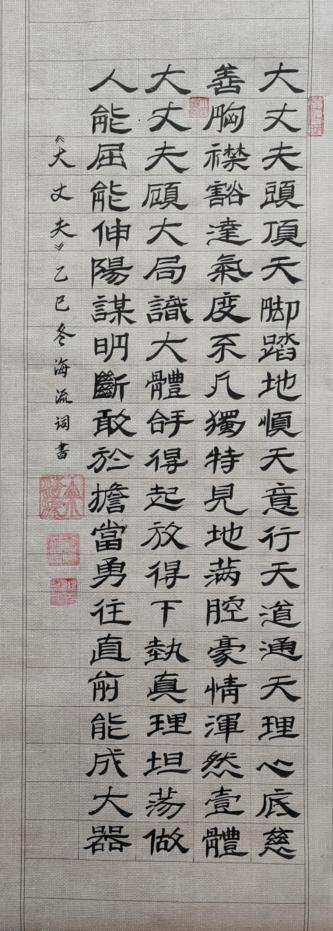 大丈夫頭頂天脚踏地順天意行天道通天理心底慈
善胸襟豁達氣度不凡獨特見地满腔豪情渾然壹體
大丈夫顧大局識大體拿得起放得下執真理坦蕩做
人能屈能伸陽謀明斷敢於擔當勇往直前能成大器
《大丈夫》乙巳冬海流詞書